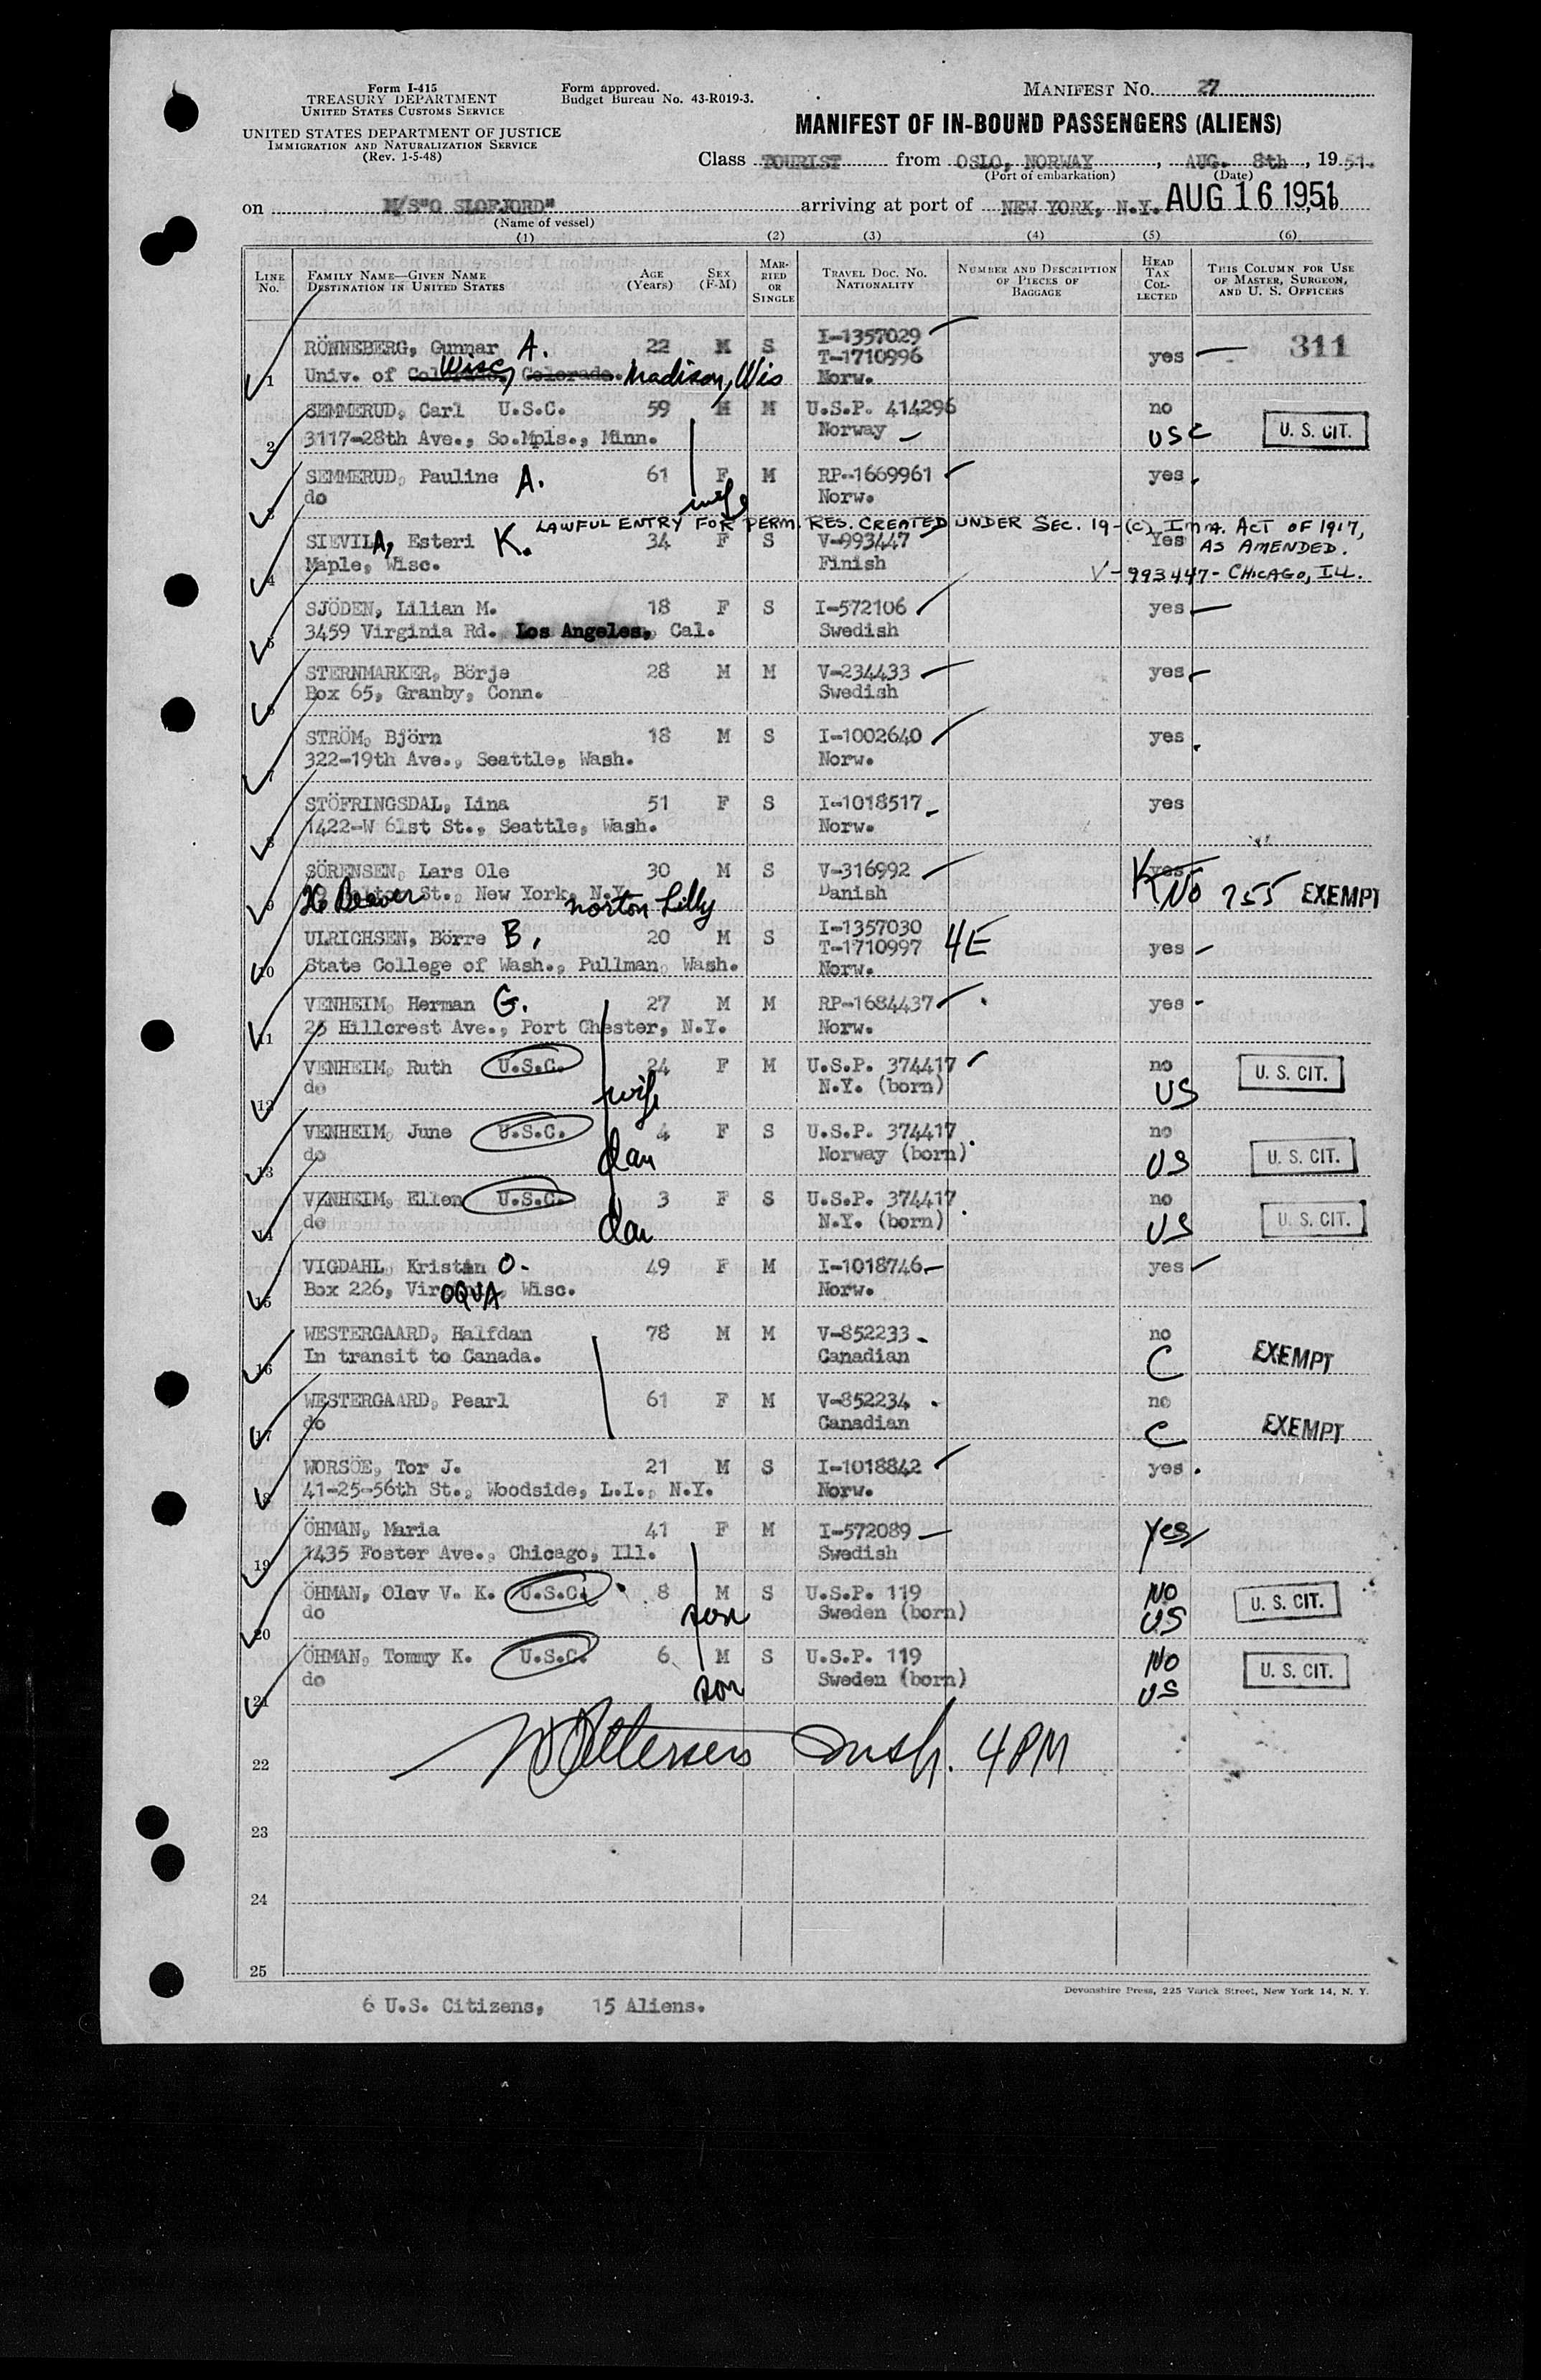 Form I-415
TREASURY DEPARTMENT
UNITED STATES CUSTOMS SERVICE
Form approved.
Budget Bureau No. 43-R019-3.
MANIFEST NO. 27
UNITED STATES DEPARTMENT OF JUSTICE
IMMIGRATION AND NATURALIZATION SERVICE
(Rev. 1-5-48)
MANIFEST OF IN-BOUND PASSENGERS (ALIENS)
Class TOURIST from OSLO, NORWAY, AUG. 8th, 1951.
(Port of embarkation) (Date)
on M/S"O SLOFJORD" arriving at port of NEW YORK, N.Y. AUG 16 1951, 19
(Name of vessel)
(1) (2) (3) (4) (5) (6)
LINE NO. FAMILY NAME—GIVEN NAME DESTINATION IN UNITED STATES AGE (Years) SEX (F-M) MARRIED OR SINGLE TRAVEL DOC. NO. NATIONALITY NUMBER AND DESCRIPTION OF PIECES OF BAGGAGE HEAD TAX COLLECTED THIS COLUMN FOR USE OF MASTER, SURGEON, AND U. S. OFFICERS
1 RÖNNEBERG, Gunnar A. 22 M S I-1357029 T-1710996 Norw. yes 311
Univ. of Colorado, Wisc, Colorado. Madison, Wis
2 SEMMERUD, Carl U.S.C. 59 M M U.S.P. 414296 no
3117-28th Ave., So.Mpls., Minn. Norway USC U. S. CIT.
3 SEMMERUD, Pauline A. 61 F M RP-1669961 yes
do wife Norw.
LAWFUL ENTRY FOR PERM. RES. CREATED UNDER SEC. 19-(C) IMM. ACT OF 1917, AS AMENDED.
4 SIEVILA, Esteri K. 34 F S V-993447 Yes
Maple, Wisc. Finish V-993447- CHICAGO, ILL.
5 SJÖDEN, Lilian M. 18 F S I-572106 yes
3459 Virginia Rd. Los Angeles, Cal. Swedish
6 STERNMARKER, Börje 28 M M V-234433 yes
Box 65, Granby, Conn. Swedish
7 STRÖM, Björn 18 M S I-1002640 yes
322-19th Ave., Seattle, Wash. Norw.
8 STÖFRINGSDAL, Lina 51 F S I-1018517 yes
1422-W 61st St., Seattle, Wash. Norw.
9 SÖRENSEN, Lars Ole 30 M S V-316992 yes
26 Beaver St., New York, N.Y. Norton Lilly Danish K NO 755 EXEMPT
10 ULRICHSEN, Börre B. 20 M S I-1357030 T-1710997 4E yes
State College of Wash., Pullman, Wash. Norw.
11 VENHEIM, Herman G. 27 M M RP-1684437 yes
25 Hillcrest Ave., Port Chester, N.Y. Norw.
12 VENHEIM, Ruth U.S.C. 24 F M U.S.P. 374417 no
do wife N.Y. (born) US U. S. CIT.
13 VENHEIM, June U.S.C. 4 F S U.S.P. 374417 no
do dau Norway (born) US U. S. CIT.
14 VENHEIM, Ellen U.S.C. 3 F S U.S.P. 374417 no
do dau N.Y. (born) US U. S. CIT.
15 VIGDAHL, Kristin O. 49 F M I-1018746 yes
Box 226, Viroqua, Wisc. Norw.
16 WESTERGAARD, Halfdan 78 M M V-852233 no
In transit to Canada. Canadian C EXEMPT
17 WESTERGAARD, Pearl 61 F M V-852234 no
do Canadian C EXEMPT
18 WORSÖE, Tor J. 21 M S I-1018842 yes
41-25-56th St., Woodside, L.I., N.Y. Norw.
19 ÖHMAN, Maria 41 F M I-572089 yes
1435 Foster Ave., Chicago, Ill. Swedish
20 ÖHMAN, Olav V. K. U.S.C. 8 M S U.S.P. 119 NO
do son Sweden (born) US U. S. CIT.
21 ÖHMAN, Tommy K. U.S.C. 6 M S U.S.P. 119 NO
do son Sweden (born) US U. S. CIT.
22 4 PM
23
24
25
Devonshire Press, 225 Varick Street, New York 14, N. Y.
6 U.S. Citizens, 15 Aliens.